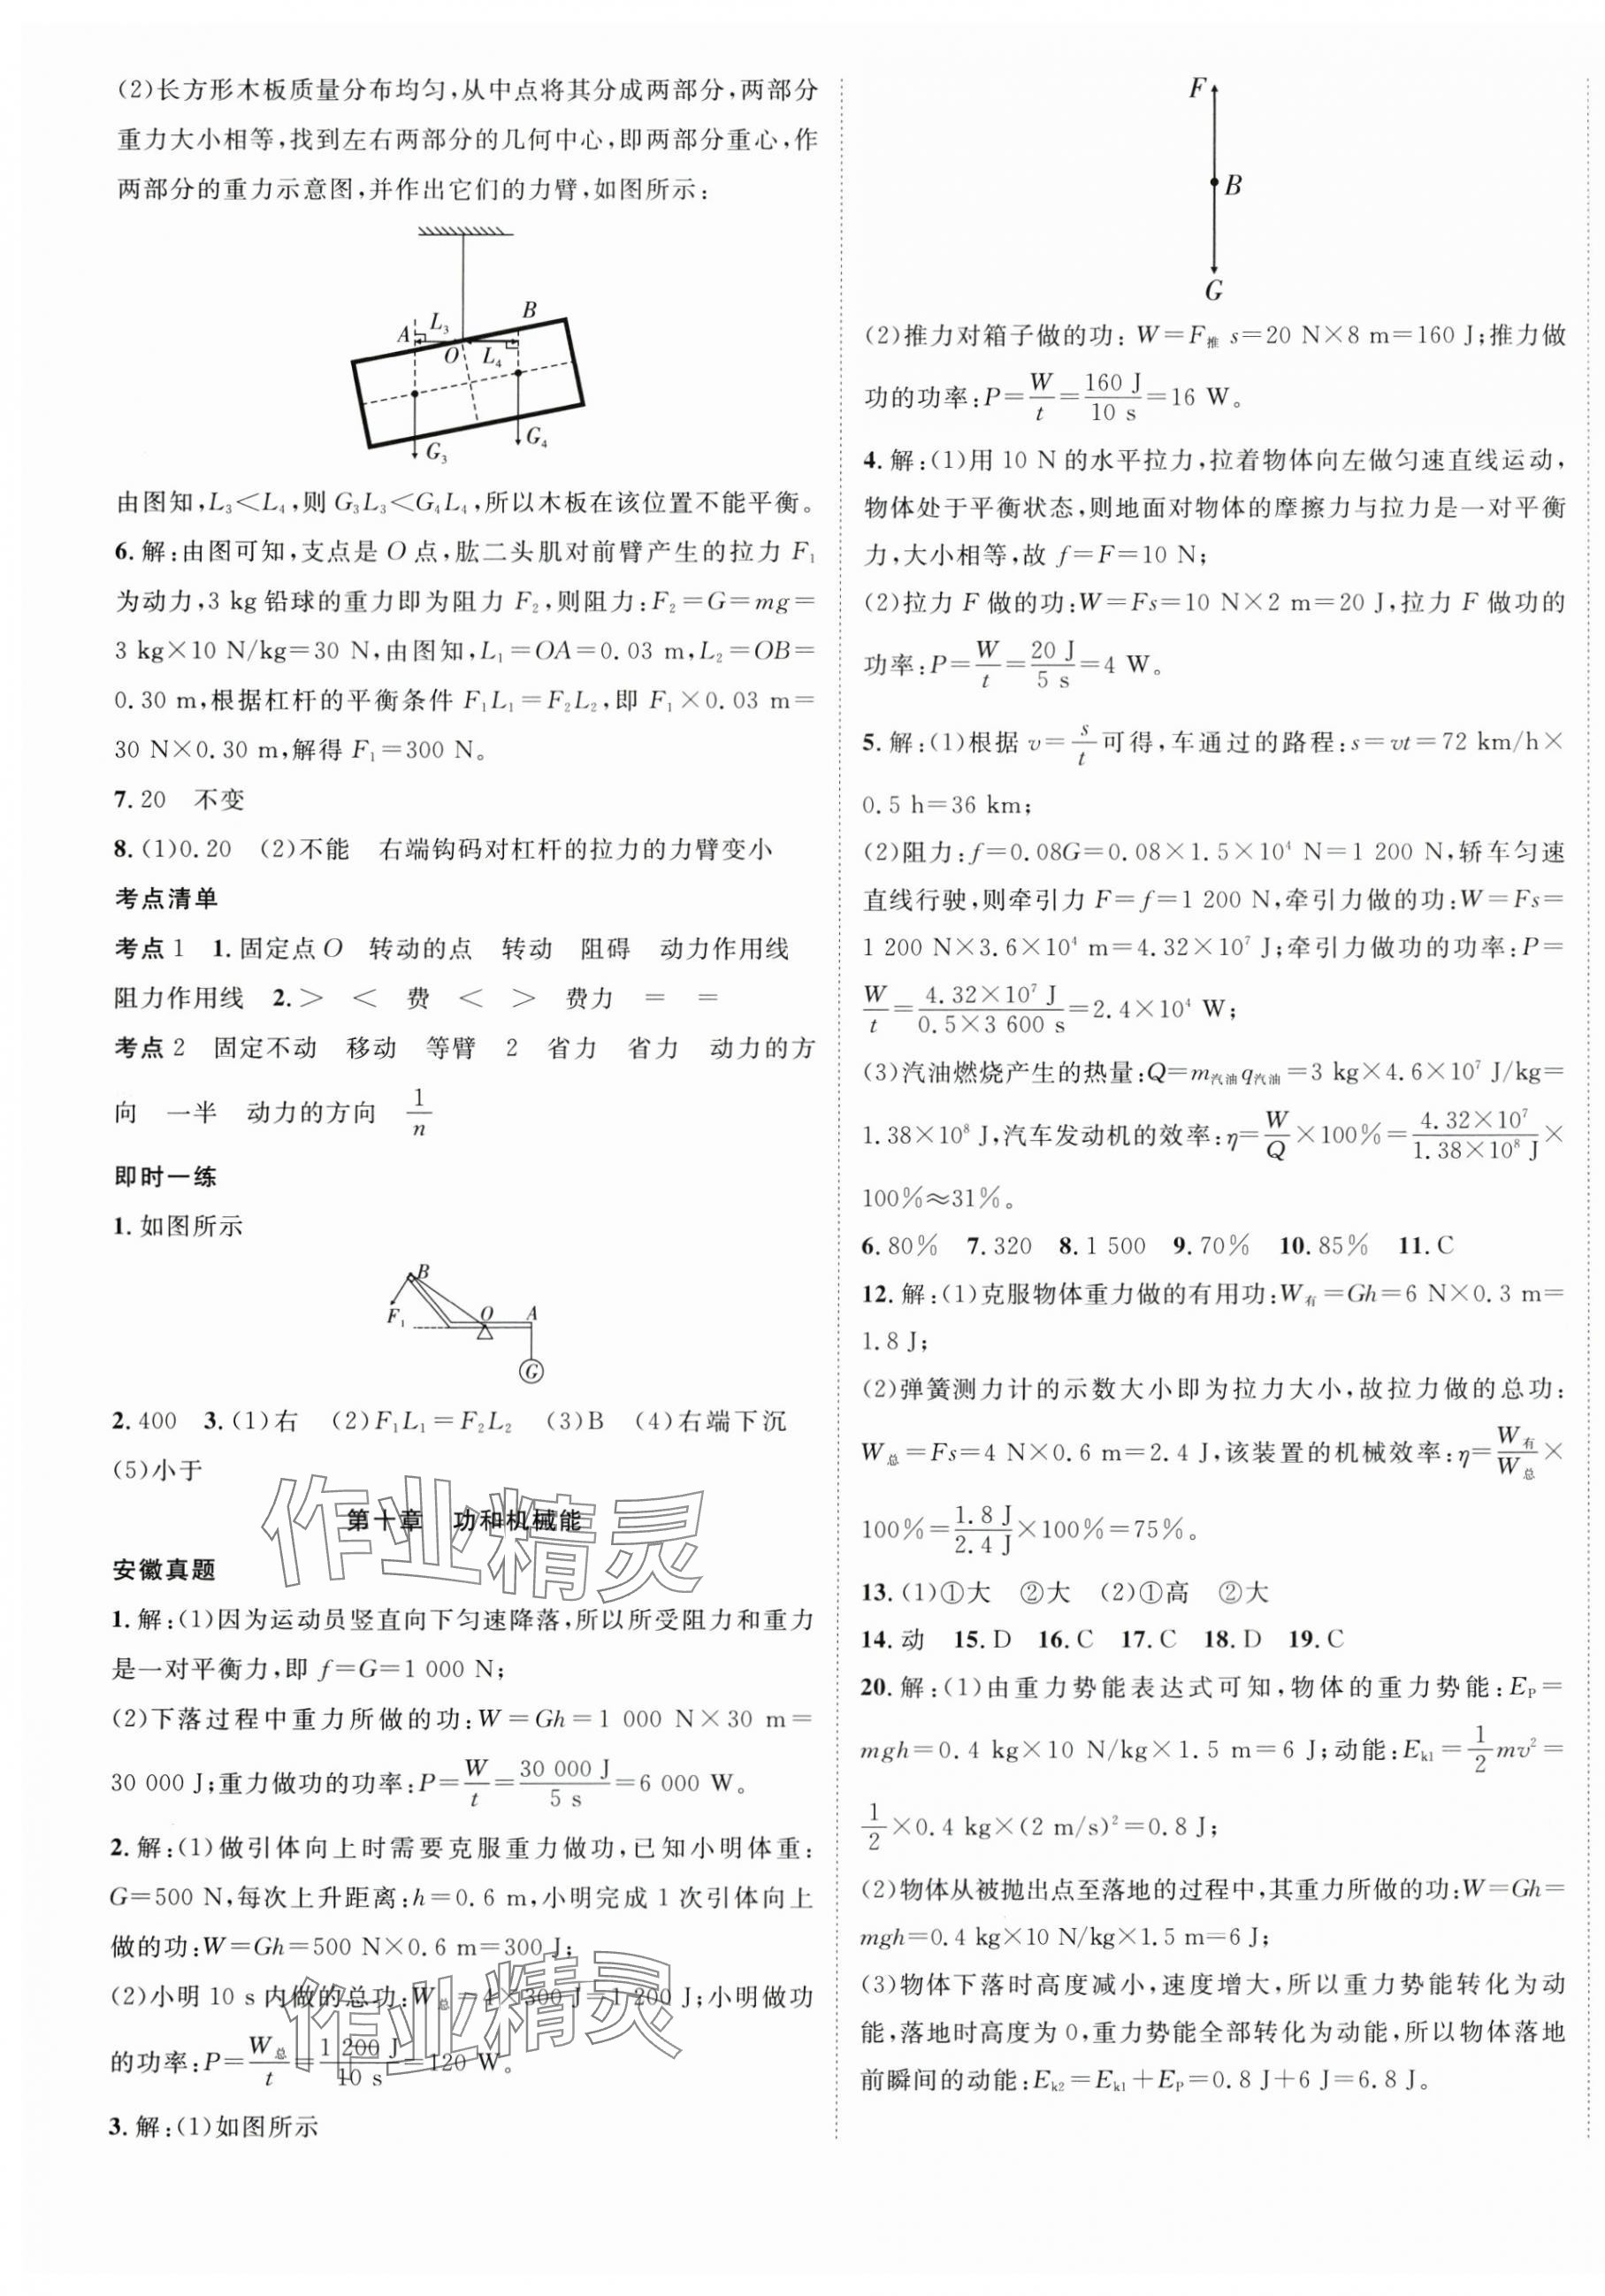 (2)长方形木板质量分布均匀,从中点将其分成两部分,两部分
重力大小相等,找到左右两部分的几何中心,即两部分重心,作
两部分的重力示意图,并作出它们的力臂,如图所示:
A L₃ B
O L₄
G₃ G₄
由图知,L₃<L₄,则 G₃L₃<G₄L₄,所以木板在该位置不能平衡。
6.解:由图可知,支点是 O 点,肱二头肌对前臂产生的拉力 F₁
为动力,3 kg 铅球的重力即为阻力 F₂,则阻力:F₂=G=mg=
3 kg×10 N/kg=30 N,由图知,L₁=OA=0.03 m,L₂=OB=
0.30 m,根据杠杆的平衡条件 F₁L₁=F₂L₂,即 F₁×0.03 m=
30 N×0.30 m,解得 F₁=300 N。
7.20 不变
8.(1)0.20 (2)不能 右端钩码对杠杆的拉力的力臂变小
考点清单
考点 1 1.固定点 O 转动的点 转动 阻碍 动力作用线
阻力作用线 2.> < 费 < > 费力 = =
考点 2 固定不动 移动 等臂 2 省力 省力 动力的方
向 一半 动力的方向 1/n
即时一练
1.如图所示
B
F₁ O A
G
2.400 3.(1)右 (2)F₁L₁=F₂L₂ (3)B (4)右端下沉
(5)小于
第十章 功和机械能
安徽真题
1.解:(1)因为运动员竖直向下匀速降落,所以所受阻力和重力
是一对平衡力,即 f=G=1 000 N;
(2)下落过程中重力所做的功:W=Gh=1 000 N×30 m=
30 000 J;重力做功的功率:P=W/t=30 000 J/5 s=6 000 W。
2.解:(1)做引体向上时需要克服重力做功,已知小明体重:
G=500 N,每次上升距离:h=0.6 m,小明完成 1 次引体向上
做的功:W=Gh=500 N×0.6 m=300 J;
(2)小明 10 s 内做的总功:W总=4×300 J=1 200 J;小明做功
的功率:P=W总/t=1 200 J/10 s=120 W。
3.解:(1)如图所示
F
B
G
(2)推力对箱子做的功:W=F推 s=20 N×8 m=160 J;推力做
功的功率:P=W/t=160 J/10 s=16 W。
4.解:(1)用 10 N 的水平拉力,拉着物体向左做匀速直线运动,
物体处于平衡状态,则地面对物体的摩擦力与拉力是一对平衡
力,大小相等,故 f=F=10 N;
(2)拉力 F 做的功:W=Fs=10 N×2 m=20 J,拉力 F 做功的
功率:P=W/t=20 J/5 s=4 W。
5.解:(1)根据 v=s/t可得,车通过的路程:s=vt=72 km/h×
0.5 h=36 km;
(2)阻力:f=0.08G=0.08×1.5×10⁴ N=1 200 N,轿车匀速
直线行驶,则牵引力 F=f=1 200 N,牵引力做的功:W=Fs=
1 200 N×3.6×10⁴ m=4.32×10⁷ J;牵引力做功的功率:P=
W/t=4.32×10⁷ J/0.5×3 600 s=2.4×10⁴ W;
(3)汽油燃烧产生的热量:Q=m汽油q汽油=3 kg×4.6×10⁷ J/kg=
1.38×10⁸ J,汽车发动机的效率:η=W/Q×100%=4.32×10⁷/1.38×10⁸ J×
100%≈31%。
6.80% 7.320 8.1 500 9.70% 10.85% 11.C
12.解:(1)克服物体重力做的有用功:W有=Gh=6 N×0.3 m=
1.8 J;
(2)弹簧测力计的示数大小即为拉力大小,故拉力做的总功:
W总=Fs=4 N×0.6 m=2.4 J,该装置的机械效率:η=W有/W总×
100%=1.8 J/2.4 J×100%=75%。
13.(1)①大 ②大 (2)①高 ②大
14.动 15.D 16.C 17.C 18.D 19.C
20.解:(1)由重力势能表达式可知,物体的重力势能:EP=
mgh=0.4 kg×10 N/kg×1.5 m=6 J;动能:Ek1=1/2mv²=
1/2×0.4 kg×(2 m/s)²=0.8 J;
(2)物体从被抛出点至落地的过程中,其重力所做的功:W=Gh=
mgh=0.4 kg×10 N/kg×1.5 m=6 J;
(3)物体下落时高度减小,速度增大,所以重力势能转化为动
能,落地时高度为 0,重力势能全部转化为动能,所以物体落地
前瞬间的动能:Ek2=Ek1+EP=0.8 J+6 J=6.8 J。
作业精灵
作业精灵